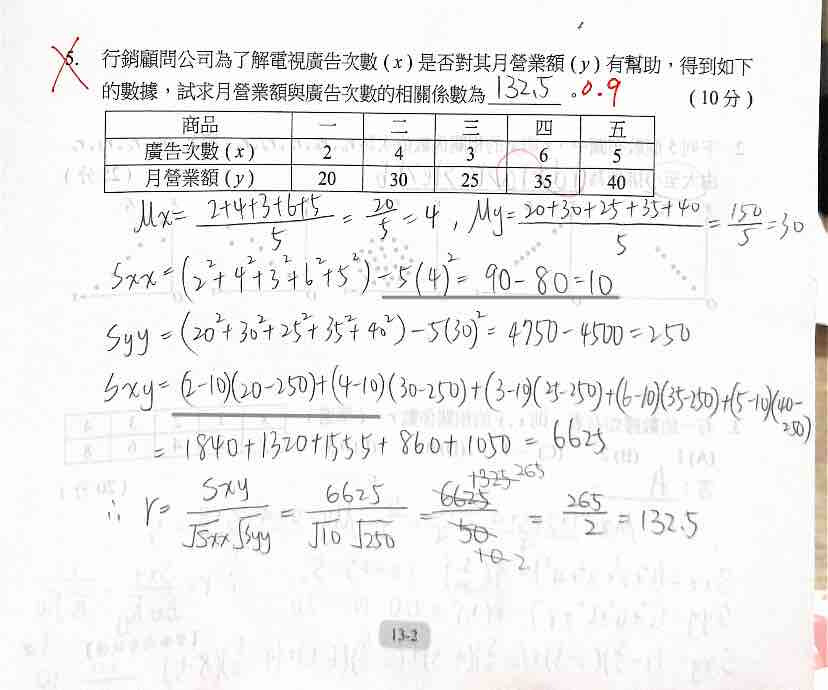 5. 行銷顧問公司為了解電視廣告次數(x)是否對其月營業額(y)有幫助，得到如下
的數據，試求月營業額與廣告次數的相關係數為 132.5 。0.9 (10分)
商品 一 二 三 四 五
廣告次數(x) 2 4 3 6 5
月營業額(y) 20 30 25 35 40
Mx = (2+4+3+6+5)/5 = 20/5 = 4 , My = (20+30+25+35+40)/5 = 150/5 = 30
Sxx = (2²+4²+3²+6²+5²)-5(4)² = 90-80=10
Syy = (20²+30²+25²+35²+40²)-5(30)² = 4750-4500=250
Sxy = (2-10)(20-250)+(4-10)(30-250)+(3-10)(25-250)+(6-10)(35-250)+(5-10)(40-250)
= 1840+1320+1555+860+1050 = 6625
∴ r = Sxy/√Sxx√Syy = 6625/√10√250 = 6625/50 = 265/2 = 132.5
13-2